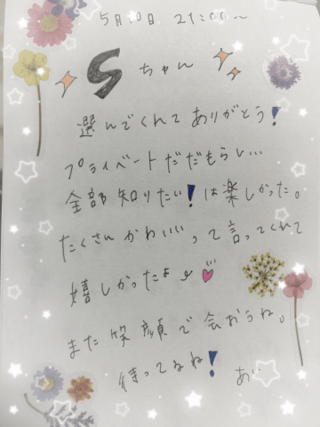 5月10日 21:00〜
Sちゃん
選んでくれてありがとう!
プライベートだだもらし…
全部知りたい!は楽しかった。
たくさんかわいいって言ってくれて
嬉しかったよ
また笑顔で会おうね。
待ってるね! あい